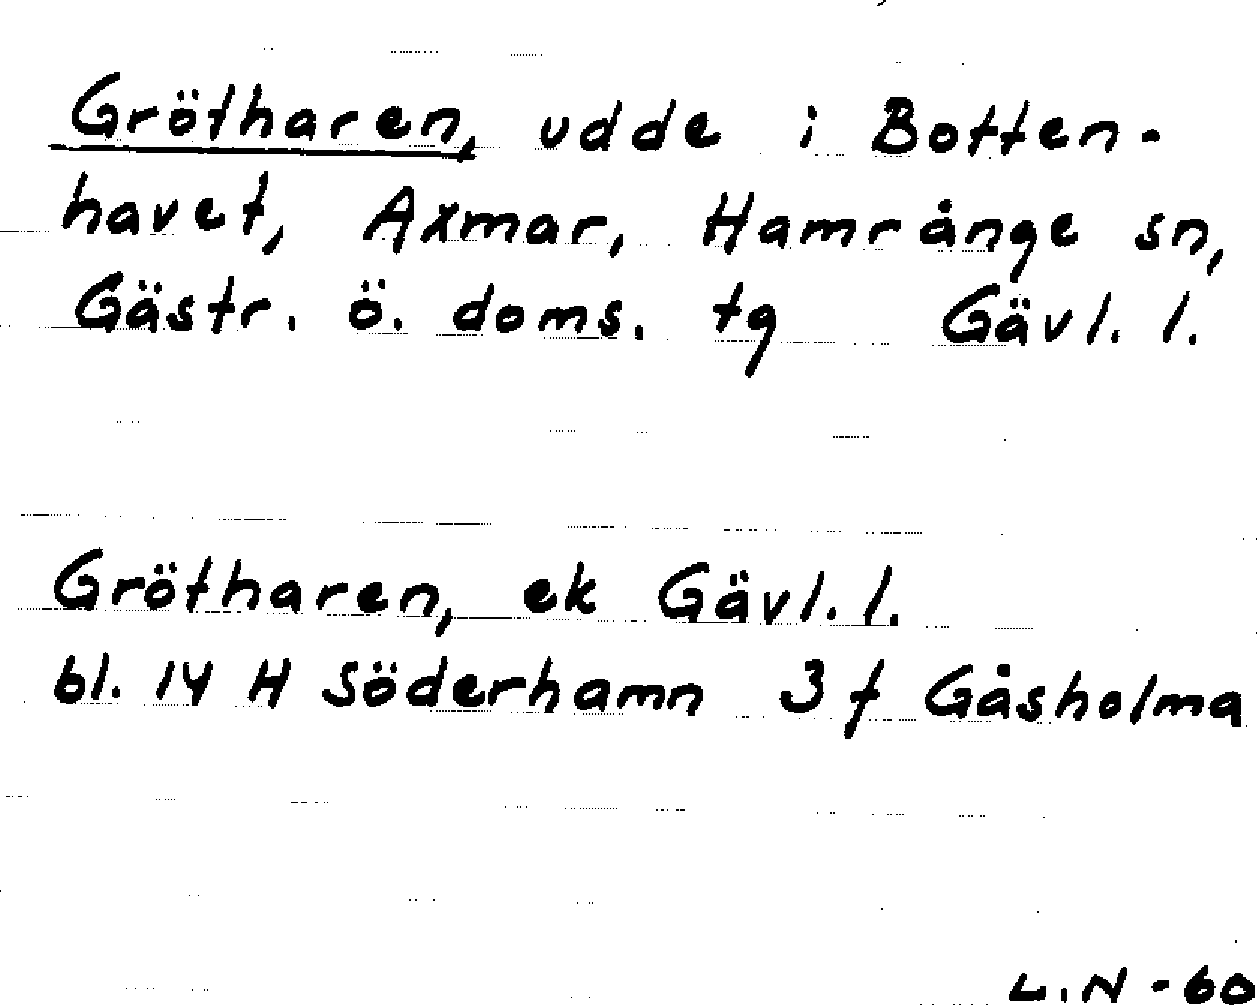 Grötharen, udde i Botten-
havet, Axmar, Hamrånge sn,
Gästr. ö. doms. tg Gävl. l.
Grötharen, ek Gävl. l.
bl. 14 H Söderhamn 3 f Gåsholma
L.N-60